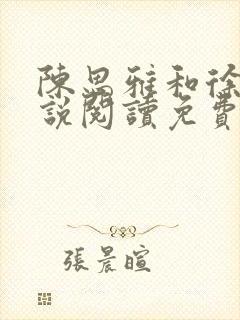 陳思雅和徐
說閱讀免費
張晨暄